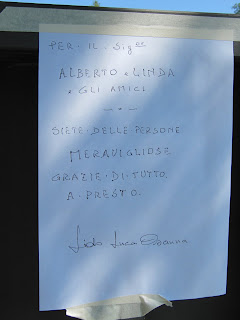 PER · IL · Sig.re
ALBERTO e LINDA
e GLI AMICI
SIETE · DELLE PERSONE
MERAVIGLIOSE
GRAZIE · DI · TUTTO
A · PRESTO
Luca